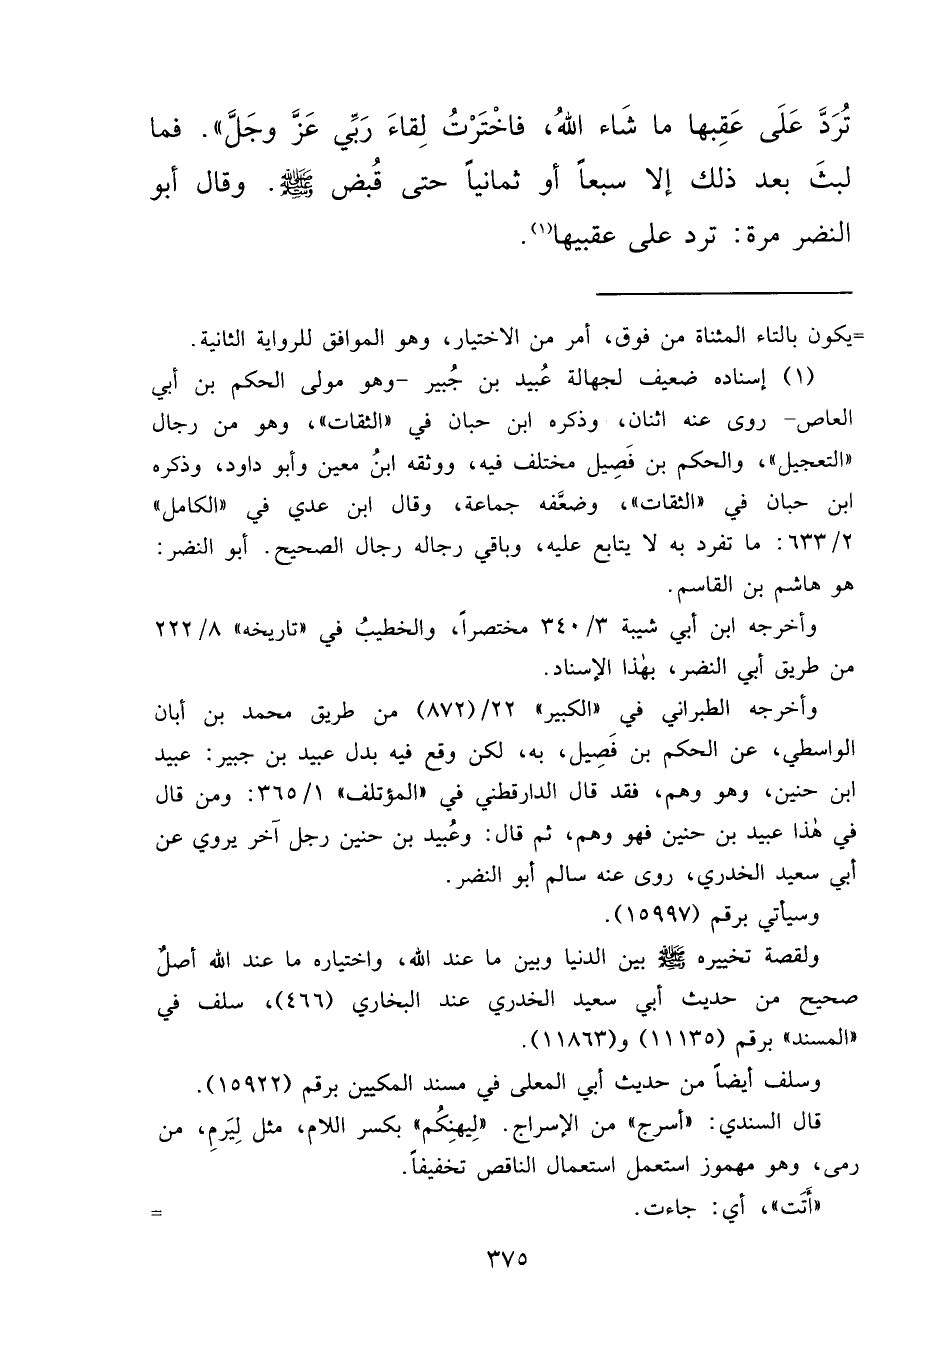 تُرَدَّ عَلَى عَقِبها ما شَاء اللهُ، فاخْتَرْتُ لِقاءَ رَبِّي عَزَّ وجَلَّ». فما
لبثَ بعد ذلك إلا سبعاً أو ثمانياً حتى قُبض ﷺ. وقال أبو
النضر مرة: ترد على عقبيها(١).
=يكون بالتاء المثناة من فوق، أمر من الاختيار، وهو الموافق للرواية الثانية.
(١) إسناده ضعيف لجهالة عُبيد بن جُبير -وهو مولى الحكم بن أبي
العاص- روى عنه اثنان، وذكره ابن حبان في «الثقات»، وهو من رجال
«التعجيل»، والحكم بن فَصِيل مختلف فيه، ووثقه ابنُ معين وأبو داود، وذكره
ابن حبان في «الثقات»، وضعَّفه جماعة، وقال ابن عدي في «الكامل»
٦٣٣/٢: ما تفرد به لا يتابع عليه، وباقي رجاله رجال الصحيح. أبو النضر:
هو هاشم بن القاسم.
وأخرجه ابن أبي شيبة ٣٤٠/٣ مختصراً، والخطيبُ في «تاريخه» ٢٢٢/٨
من طريق أبي النضر، بهٰذا الإسناد.
وأخرجه الطبراني في «الكبير» ٢٢/(٨٧٢) من طريق محمد بن أبان
الواسطي، عن الحكم بن فَصِيل، به، لكن وقع فيه بدل عبيد بن جبير: عبيد
ابن حنين، وهو وهم، فقد قال الدارقطني في «المؤتلف» ٣٦٥/١: ومن قال
في هٰذا عبيد بن حنين فهو وهم، ثم قال: وعُبيد بن حنين رجل آخر يروي عن
أبي سعيد الخدري، روى عنه سالم أبو النضر.
وسيأتي برقم (١٥٩٩٧).
ولقصة تخييره ﷺ بين الدنيا وبين ما عند الله، واختياره ما عند الله أصلٌ
صحيح من حديث أبي سعيد الخدري عند البخاري (٤٦٦)، سلف في
«المسند» برقم (١١١٣٥) و(١١٨٦٣).
وسلف أيضاً من حديث أبي المعلى في مسند المكيين برقم (١٥٩٢٢).
قال السندي: «أسرج» من الإسراج. «لِيهنِكُم» بكسر اللام، مثل لِيَرمِ، من
رمى، وهو مهموز استعمل استعمال الناقص تخفيفاً.
«أَتَت»، أي: جاءت. =
٣٧٥